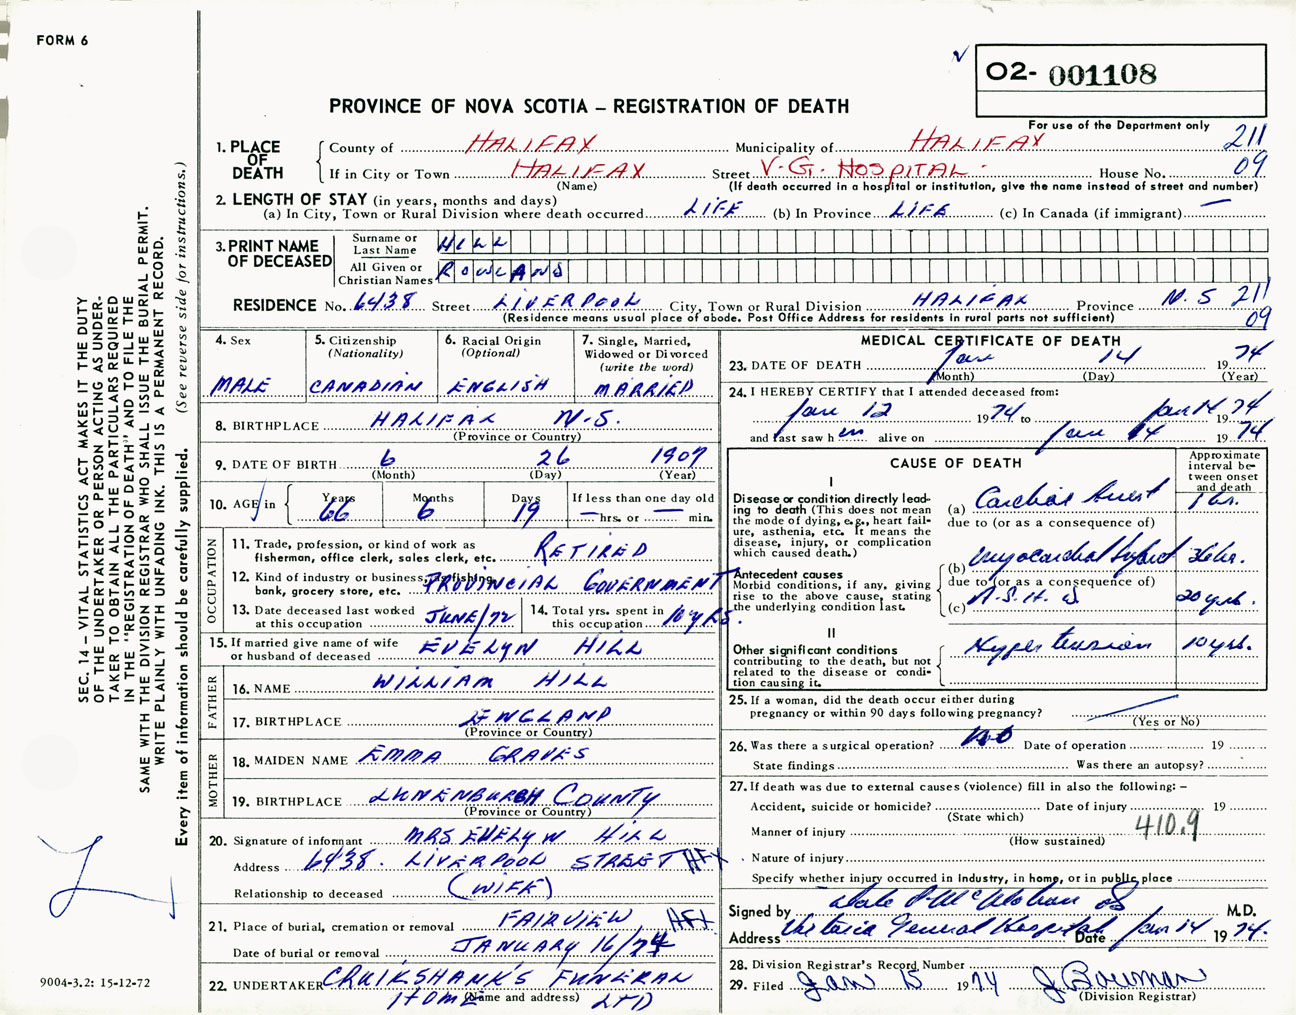 FORM 6
O2- 001108
PROVINCE OF NOVA SCOTIA – REGISTRATION OF DEATH
For use of the Department only
211
09
1. PLACE OF DEATH
County of HALIFAX Municipality of HALIFAX
If in City or Town HALIFAX Street V.G. HOSPITAL. House No.
(Name) (If death occurred in a hospital or institution, give the name instead of street and number)
2. LENGTH OF STAY (in years, months and days)
(a) In City, Town or Rural Division where death occurred LIFE (b) In Province LIFE (c) In Canada (if immigrant) —
3. PRINT NAME OF DECEASED
Surname or Last Name HILL
All Given or Christian Names ROWLAND
RESIDENCE No. 6438 Street LIVERPOOL City, Town or Rural Division HALIFAX Province N.S 211
09
(Residence means usual place of abode. Post Office Address for residents in rural parts not sufficient)
4. Sex
MALE
5. Citizenship (Nationality)
CANADIAN
6. Racial Origin (Optional)
ENGLISH
7. Single, Married, Widowed or Divorced (write the word)
MARRIED
8. BIRTHPLACE HALIFAX N.S.
(Province or Country)
9. DATE OF BIRTH 6 26 1907
(Month) (Day) (Year)
10. AGE in Years Months Days If less than one day old
66 6 19 — hrs. or — min.
OCCUPATION
11. Trade, profession, or kind of work as fisherman, office clerk, sales clerk, etc. RETIRED
12. Kind of industry or business, as fishing, bank, grocery store, etc. PROVINCIAL GOVERNMENT
13. Date deceased last worked at this occupation JUNE/72
14. Total yrs. spent in this occupation 10 yRS.
15. If married give name of wife or husband of deceased EVELYN HILL
FATHER
16. NAME WILLIAM HILL
17. BIRTHPLACE ENGLAND
(Province or Country)
MOTHER
18. MAIDEN NAME EMMA GRAVES
19. BIRTHPLACE LUNENBURGH COUNTY
(Province or Country)
20. Signature of informant MRS EVELYN HILL
Address 6438. LIVERPOOL STREET HFX
Relationship to deceased (WIFE)
21. Place of burial, cremation or removal FAIRVIEW HFX.
Date of burial or removal JANUARY 16/74
22. UNDERTAKER CRUIKSHANK'S FUNERAL
HOME LTD
(Name and address)
MEDICAL CERTIFICATE OF DEATH
23. DATE OF DEATH Jan 14 1974
(Month) (Day) (Year)
24. I HEREBY CERTIFY that I attended deceased from:
Jan 12 1974 to Jan 14 1974
and last saw him alive on Jan 14 1974
CAUSE OF DEATH
Approximate interval between onset and death
I
Disease or condition directly leading to death (This does not mean the mode of dying, e.g., heart failure, asthenia, etc. It means the disease, injury, or complication which caused death.)
(a) Cardiac Arrest 1 hr.
due to (or as a consequence of)
(b) Myocardial 36 hr.
Antecedent causes
Morbid conditions, if any, giving rise to the above cause, stating the underlying condition last.
due to (or as a consequence of)
(c) A.S.H.D. 20 yrs.
II
Other significant conditions contributing to the death, but not related to the disease or condition causing it.
Hypertension 10 yrs.
25. If a woman, did the death occur either during pregnancy or within 90 days following pregnancy?
(Yes or No)
26. Was there a surgical operation? No Date of operation 19
State findings Was there an autopsy?
27. If death was due to external causes (violence) fill in also the following: –
Accident, suicide or homicide? Date of injury 19
(State which)
Manner of injury 410.9
(How sustained)
Nature of injury
Specify whether injury occurred in Industry, in home, or in public place
Signed by M.D.
Address Victoria General Hospital Date Jan 14 1974.
28. Division Registrar's Record Number
29. Filed Jan 15 1974 J. Bowman
(Division Registrar)
SEC. 14 – VITAL STATISTICS ACT MAKES IT THE DUTY
OF THE UNDERTAKER OR PERSON ACTING AS UNDER-
TAKER TO OBTAIN ALL THE PARTICULARS REQUIRED
IN THE "REGISTRATION OF DEATH" AND TO FILE THE
SAME WITH THE DIVISION REGISTRAR WHO SHALL ISSUE THE BURIAL PERMIT.
WRITE PLAINLY WITH UNFADING INK. THIS IS A PERMANENT RECORD.
Every item of information should be carefully supplied. (See reverse side for instructions.)
9004-3.2: 15-12-72